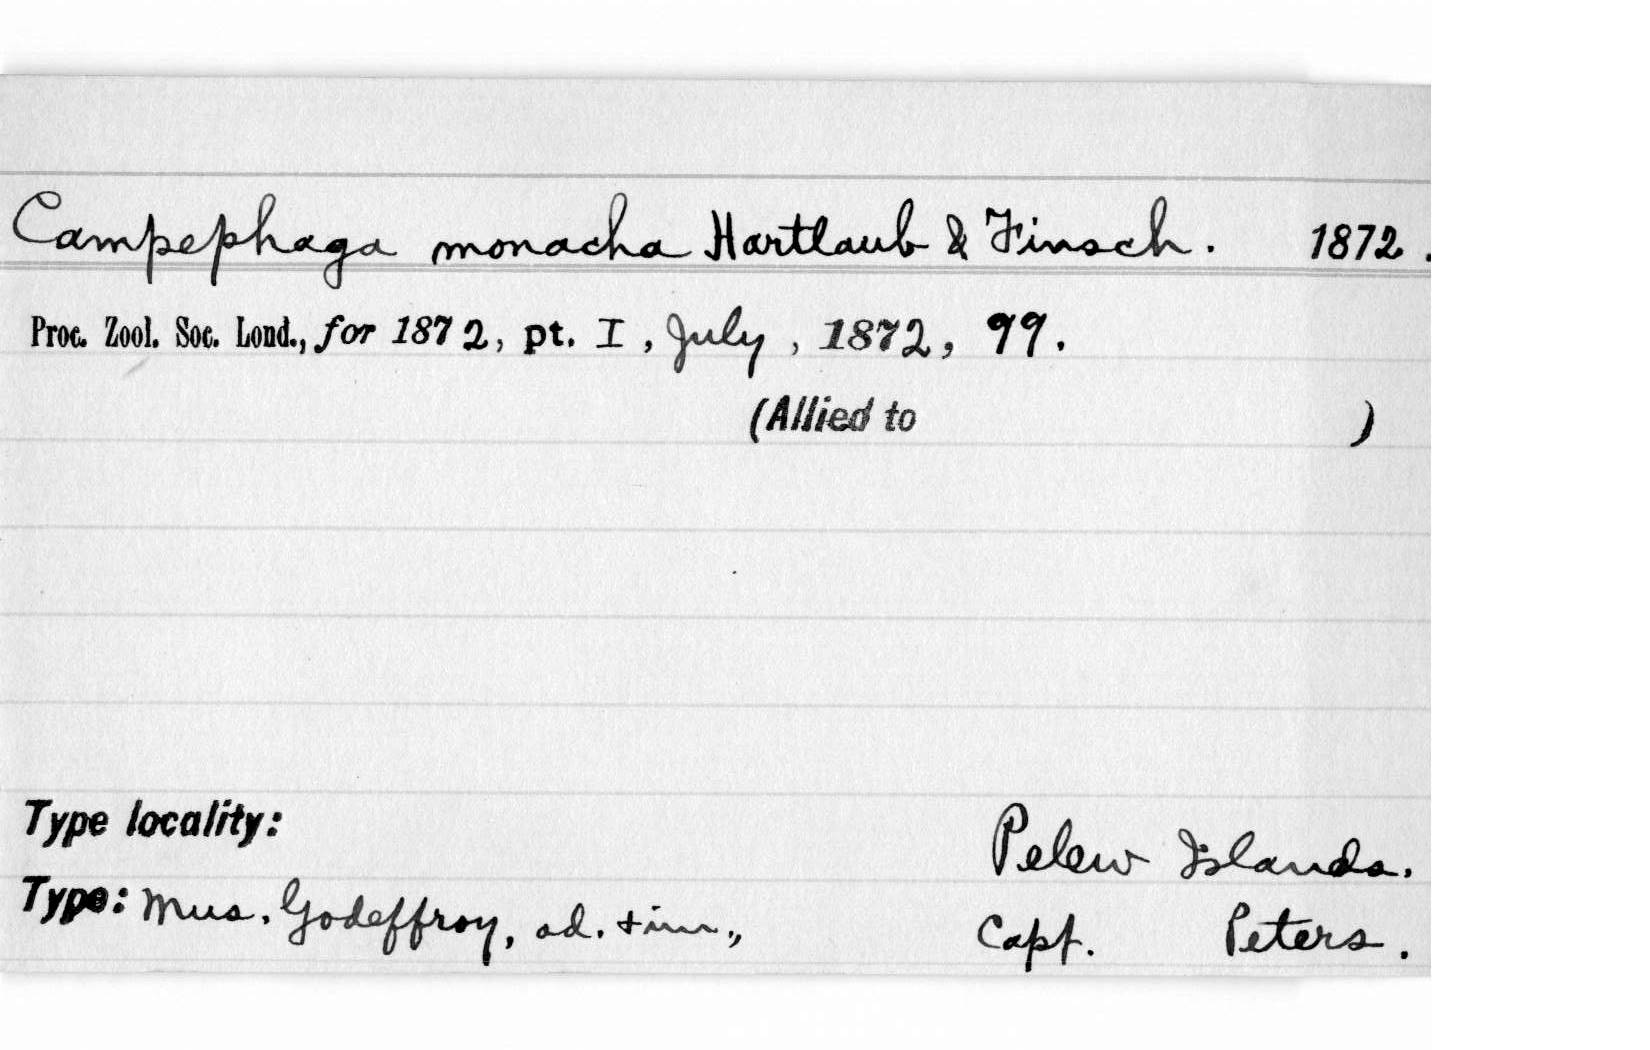 Campephaga monacha Hartlaub & Finsch. 1872.
Proc. Zool. Soc. Lond., for 1872, pt. I, July, 1872, 99.
(Allied to )
Type locality: Pelew Islands.
Type: Mus. Godeffroy, ad. + im., Capt. Peters.